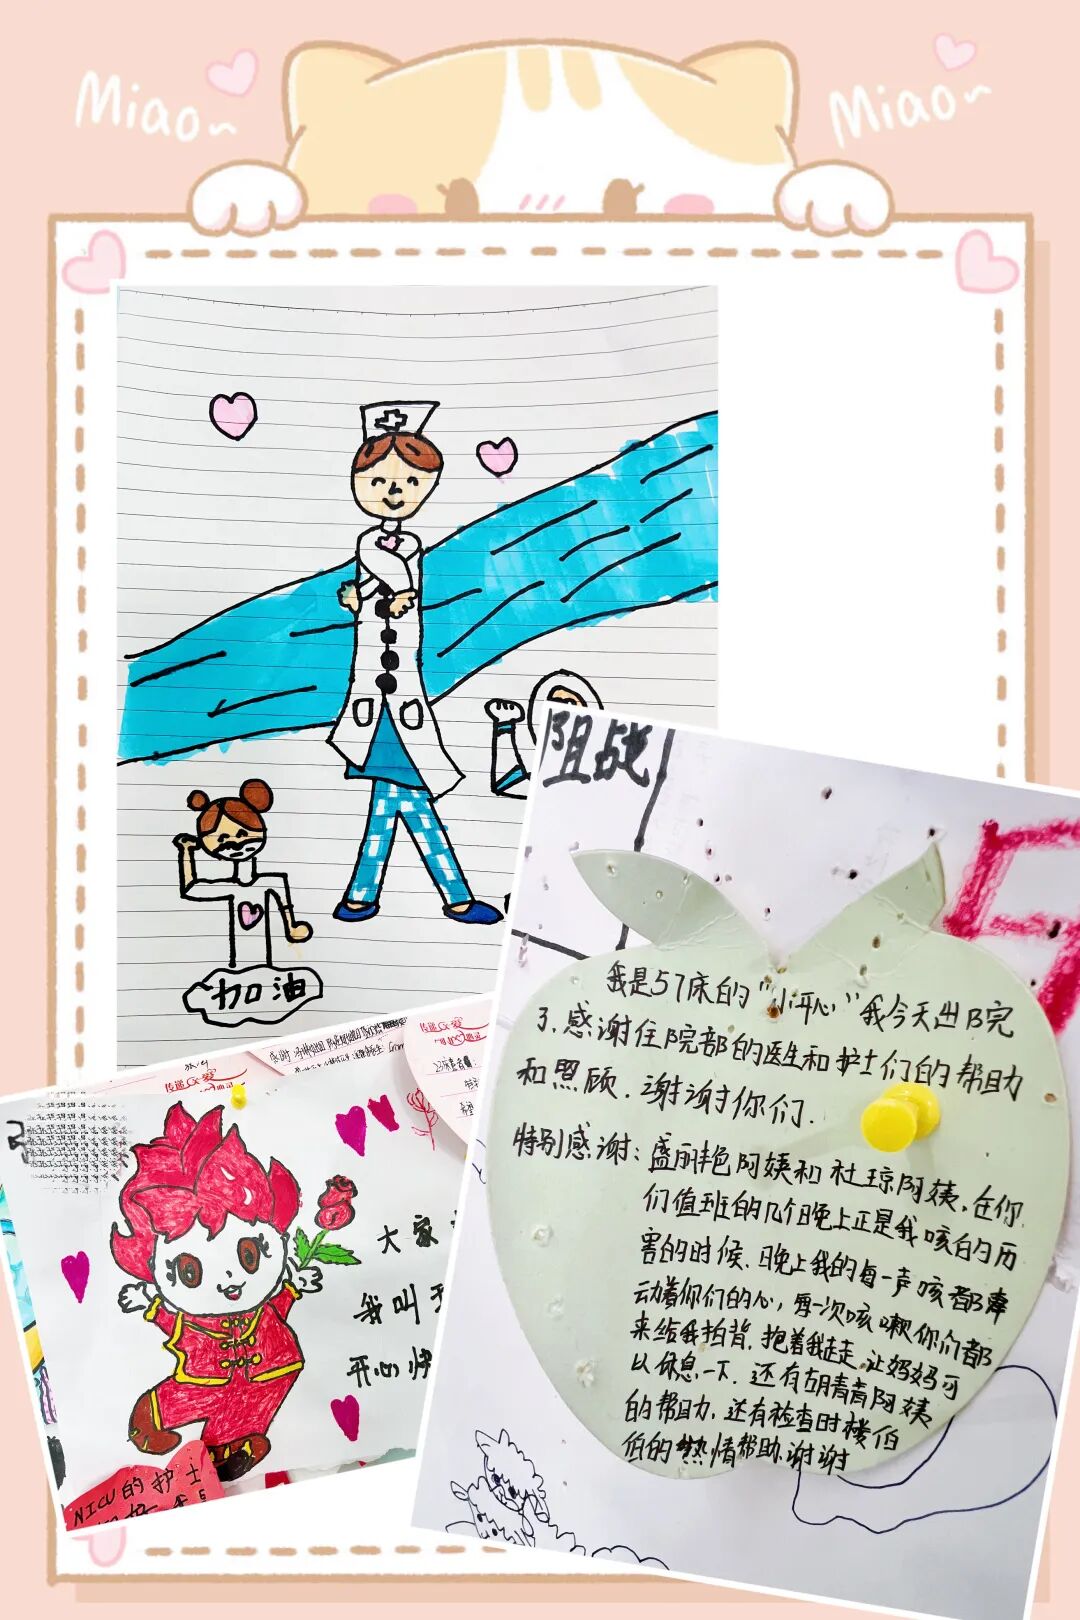 Miao~
Miao~
加油
阻战
我是57床的“小开心”我今天出院
了.感谢住院部的医生和护士们的帮助
和照顾.谢谢你们.
特别感谢：盛丽艳阿姨和杜琼阿姨.在你
们值班的几个晚上正是我咳的厉
害的时候.晚上我的每一声咳都牵
动着你们的心，每一次咳嗽你们都
来给我拍背.抱着我走走.让妈妈可
以休息一下.还有胡青青阿姨
的帮助.还有检查时楼伯
伯的热情帮助.谢谢
传递心爱
传递心爱
大家
我叫
开心快
NICU的护士